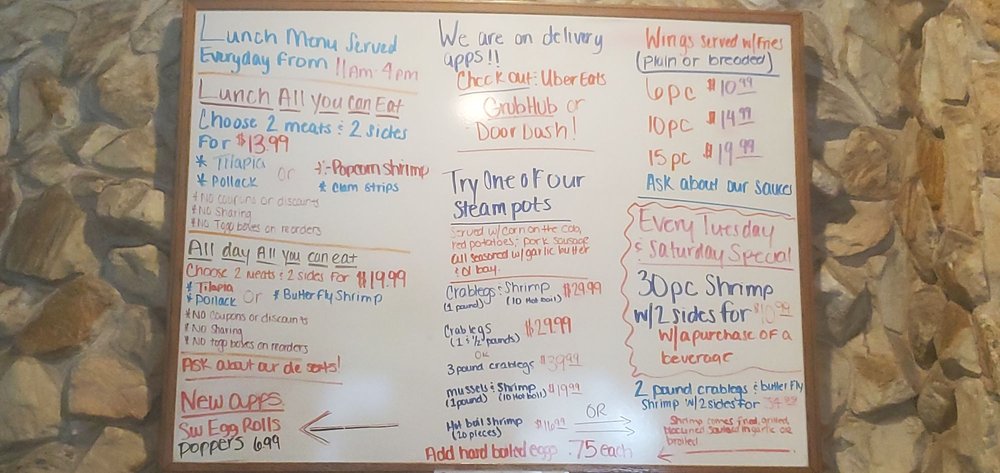 Lunch Menu Served
Everyday from 11am-4pm
Lunch All you can Eat
Choose 2 meats & 2 sides
For $13.99
* Tilapia or * Popcorn Shrimp
* Pollack * Clam strips
*No coupons or discounts
*No Sharing
*No Togo boxes on reorders
All day All you can eat
Choose 2 meats & 2 sides for $19.99
* Tilapia
* Pollack or * Butterfly Shrimp
*No Coupons or discounts
* No Sharing
* No togo boxes on reorders
Ask about our desserts!
New apps.
Sw Egg Rolls
Poppers 6.99
We are on delivery
apps!!
Check out: UberEats
GrubHub or
DoorDash!
Try One of our
Steam pots
Served w/corn on the cob,
red potatoes, pork sausage
all seasoned w/garlic butter
& ol bay.
Crablegs & Shrimp $29.99
(1 pound) (10 Hot boil)
Crablegs $29.99
(1 & ½ pounds)
OR
3 pound crablegs $39.99
mussels & Shrimp $19.99
(1 pound) (10 Hot boil)
Hot boil Shrimp $16.99
(20 pieces)
OR
Add hard boiled eggs .75 each
Wings served w/Fries
(plain or breaded)
6pc $10.99
10pc $14.99
15pc $19.99
Ask about our Sauces
Every Tuesday
& Saturday Special
30pc Shrimp
w/2 sides for $10.99
w/a purchase of a
beverage
2 pound crablegs & butterfly
Shrimp w/2 sides for 34.99
Shrimp comes fried, grilled,
blackened sauteed in garlic or
broiled